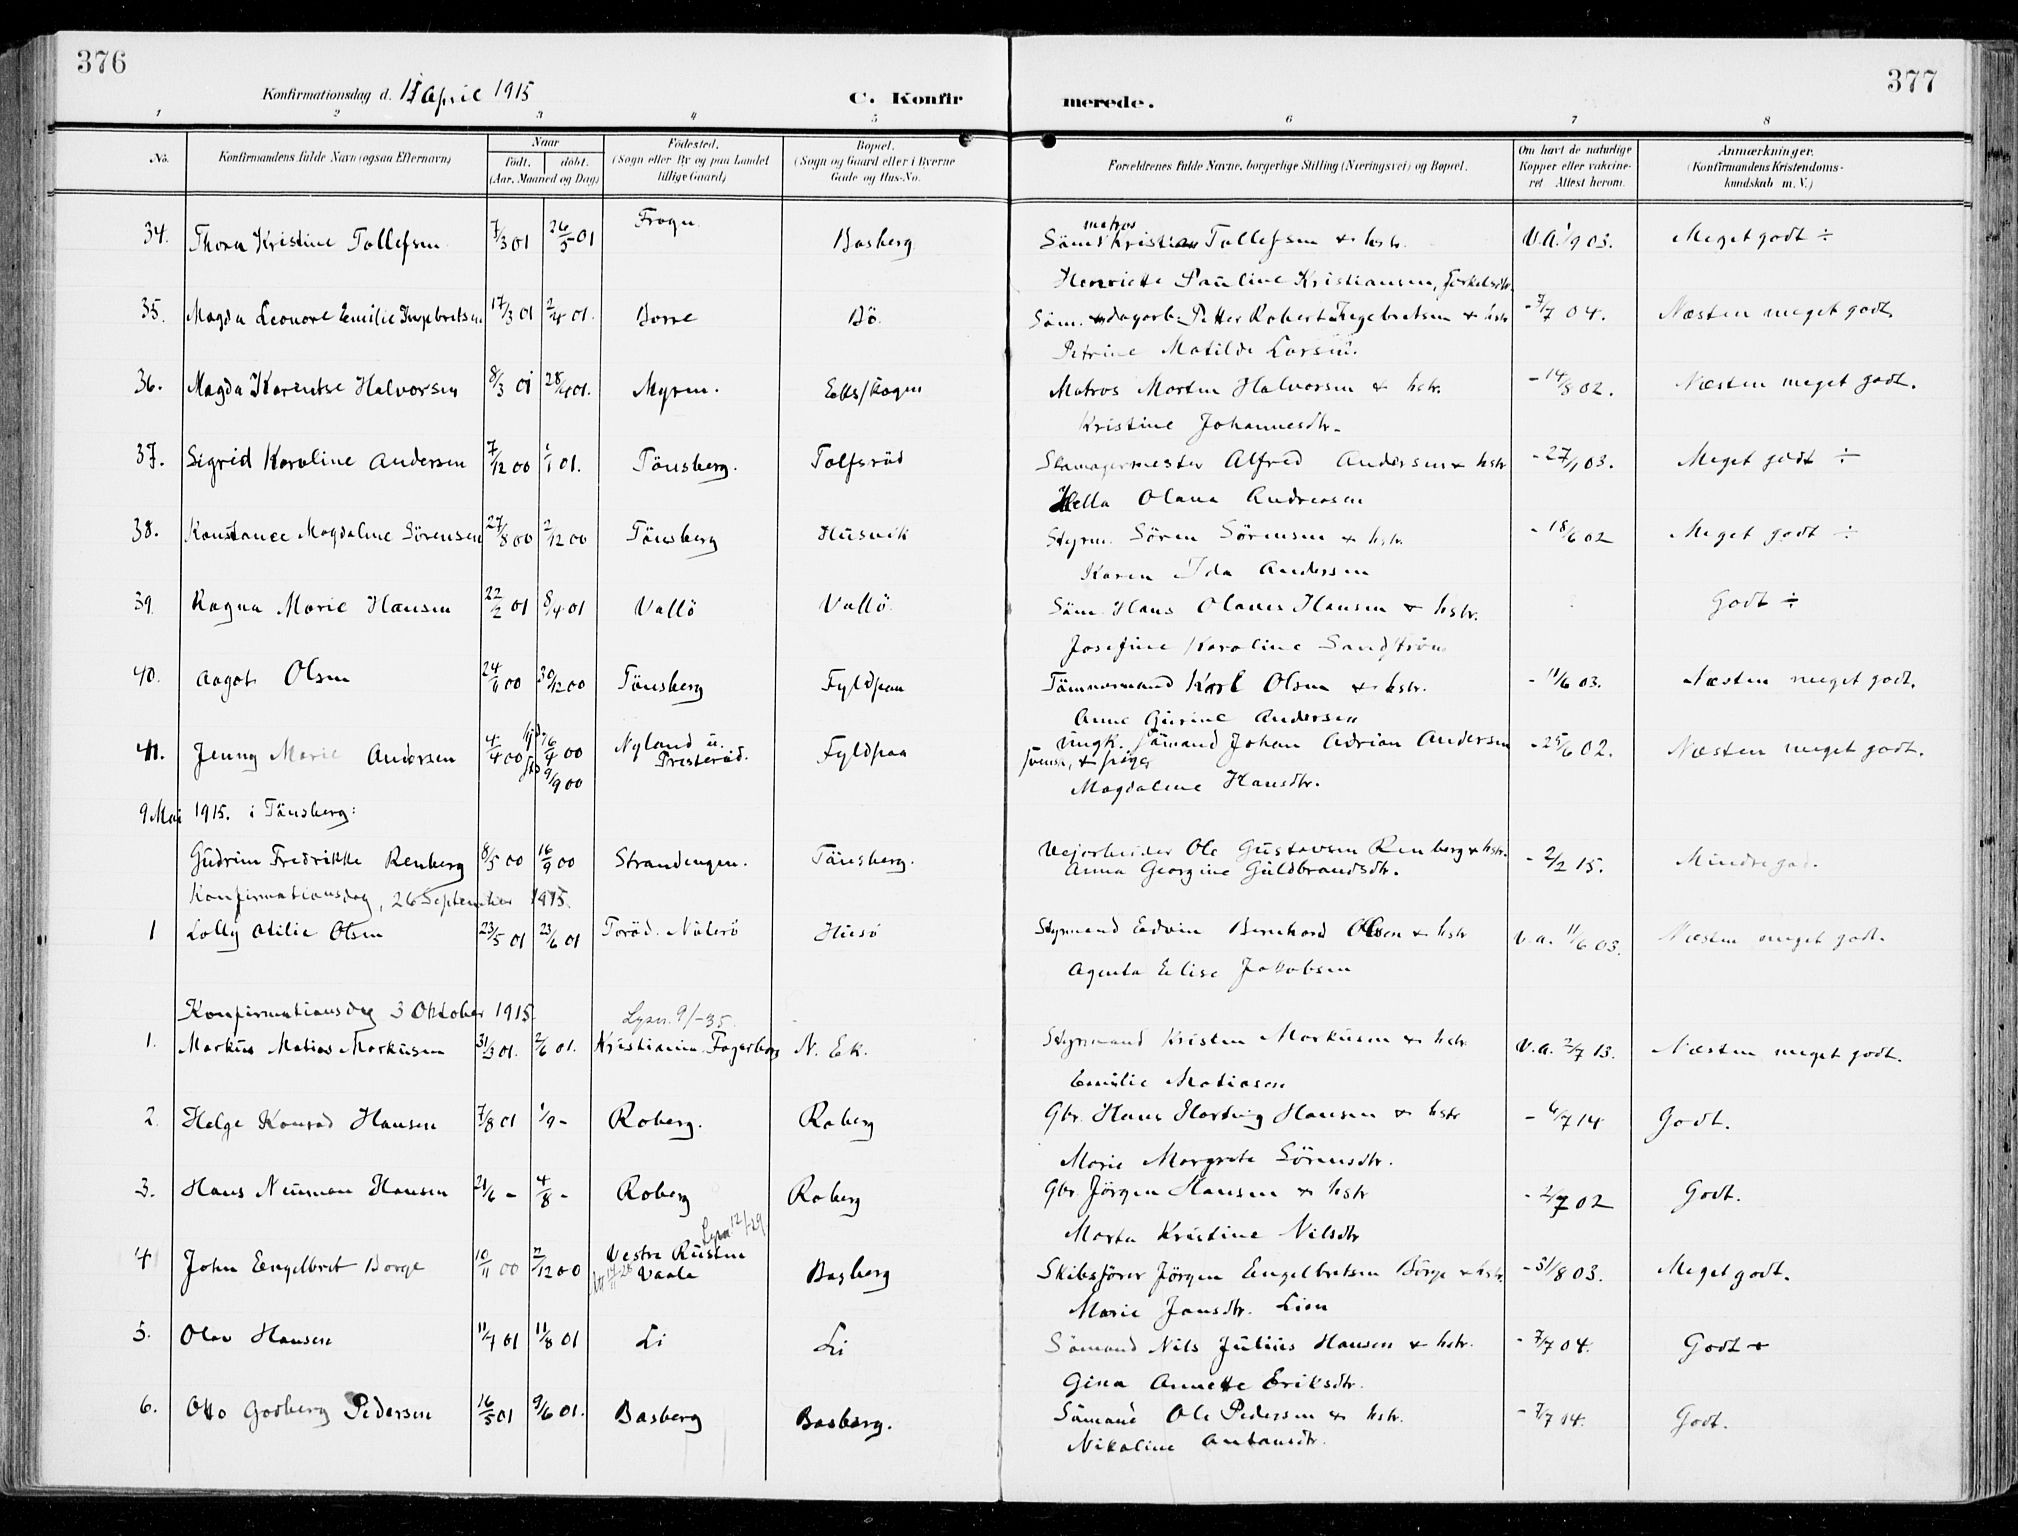 376
377
Konfirmationsdag d. 11 april 1915
C. Konfirmerede.
1 2 3 4 5 6 7 8
No. Konfirmandens fulde Navn (ogsaa Efternavn) Naar født. døbt. (Aar, Maaned og Dag) Fødested. (Sogn eller By og paa Landet tillige Gaard) Bopæl. (Sogn og Gaard eller i Byerne Gade og Hus-No. Forældrenes fulde Navne, borgerlige Stilling (Næringsvei) og Bopæl. Om havt de naturlige Kopper eller vaccineret Attest herom. Anmærkninger. (Konfirmandens Kristendomskundskab m. V.)
34. Thora Kristine Tollefsen 7/3 01 26/5 01 Frogn Basberg Söm. matros Kristian Tollefsen & hstr. V.A. 1/9 03. Meget godt ÷
Henriette Pauline Kristiansen,
35. Magda Leonore Emilie Ingebretsen 17/3 01 2/4 01. Borre Bö. Söm. & dagarb. Petter Robert Ingebretsen & hstr - 7/7 04. Næsten meget godt
Petrine Matilde Larsen.
36. Magda Karentse Halvorsen 8/3 01 28/4 01. Myren. Eikskogen Matros Morten Halvorsen & hstr. - 14/8 02. Næsten meget godt.
Kristine Johannesdtr.
37. Sigrid Karoline Andersen 7/12 00 1/1 01. Tönsberg. Tolfsröd Skomagermester Alfred Andersen & hstr - 27/1 03. Meget godt ÷
Hella Olana Andreasen
38. Konstance Magdaline Sörensen 27/8 00 2/12 00 Tönsberg Husvik Styrm. Sören Sörensen & hstr. - 18/6 02 Meget godt ÷
Karen Ida Andersen
39. Ragna Marie Hansen 22/2 01 8/4 01 Vallö Vallö. Söm. Hans Olaves Hansen & hstr. Godt ÷
Josefine Karoline Sandström
40. Aagot Olsen 24/11 00 30/12 00 Tönsberg Fyldpaa Tömmermand Karl Olsen & hstr. - 11/6 03. Næsten meget godt.
Anne Gurine Andersen
41. Jenny Marie Andersen 4/4 00 hjd 16/4 00 Nyland u. Presteröd. Fyldpaa Ungk. sömand Johan Adrian Andersen - 25/6 02. Næsten meget godt.
9/9 00 & pige
Magdalene Hansdtr.
9 Mai 1915. i Tönsberg:
Gudrun Fredrikke Renberg 8/5 00 16/9 00 Strandengen. Tönsberg. Veiarbeider Ole Gustavsen Renberg & hstr. - 2/2 15. Mindre god.
Anna Georgine Guldbrandsdtr.
Konfirmationsdag, 26 September 1915.
1 Lolly Otilie Olsen 23/5 01 23/6 01 Toröd. Nöterö Husö Styrmand Edvin Bernhard Olsen & hstr V.a. 11/6 03. Næsten meget godt.
Agenta Elise Jakobsen
Konfirmationsdag 3 Oktober 1915. Lysn. 9/-35.
1. Markus Matias Markusen 31/3 01. 2/6 01. Kristiania. Fagerborg N. Ek. Styrmand Kristen Markusen & hstr. V.a. 2/7 13. Næsten meget godt.
Emilie Matiasen
2. Helge Konrad Hansen 7/8 01 1/9 - Roberg. Roberg Gbr. Hans Hartvig Hansen & hstr - 6/7 14 Godt.
Marie Margrete Sörensdtr.
3. Hans Neuman Hansen 21/6 - 4/8 - Roberg Roberg Gbr. Jörgen Hansen & hstr - 2/7 02 Godt.
Marta Kristine Nilsdtr
Lysn. 12/-29
4 John Engelbret Borge 10/11 00 2/12 00 Vestre Rusten Vaale Basberg Skibsförer Jörgen Engelbretsen Börge & hstr. - 31/8 03. Meget godt.
Marie Jansdtr. Lien
5. Olav Hansen 11/7 01 11/8 01 Li Li Sömand Nils Julius Hansen & hstr. - 7/7 04. Godt +
Gina Annette Eriksdtr.
6. Otto Godberg Pedersen 16/5 01 9/6 01. Basberg Basberg. Sömand Ole Pedersen & hstr. - 7/7 14. Godt.
Nikoline Antonsdtr.